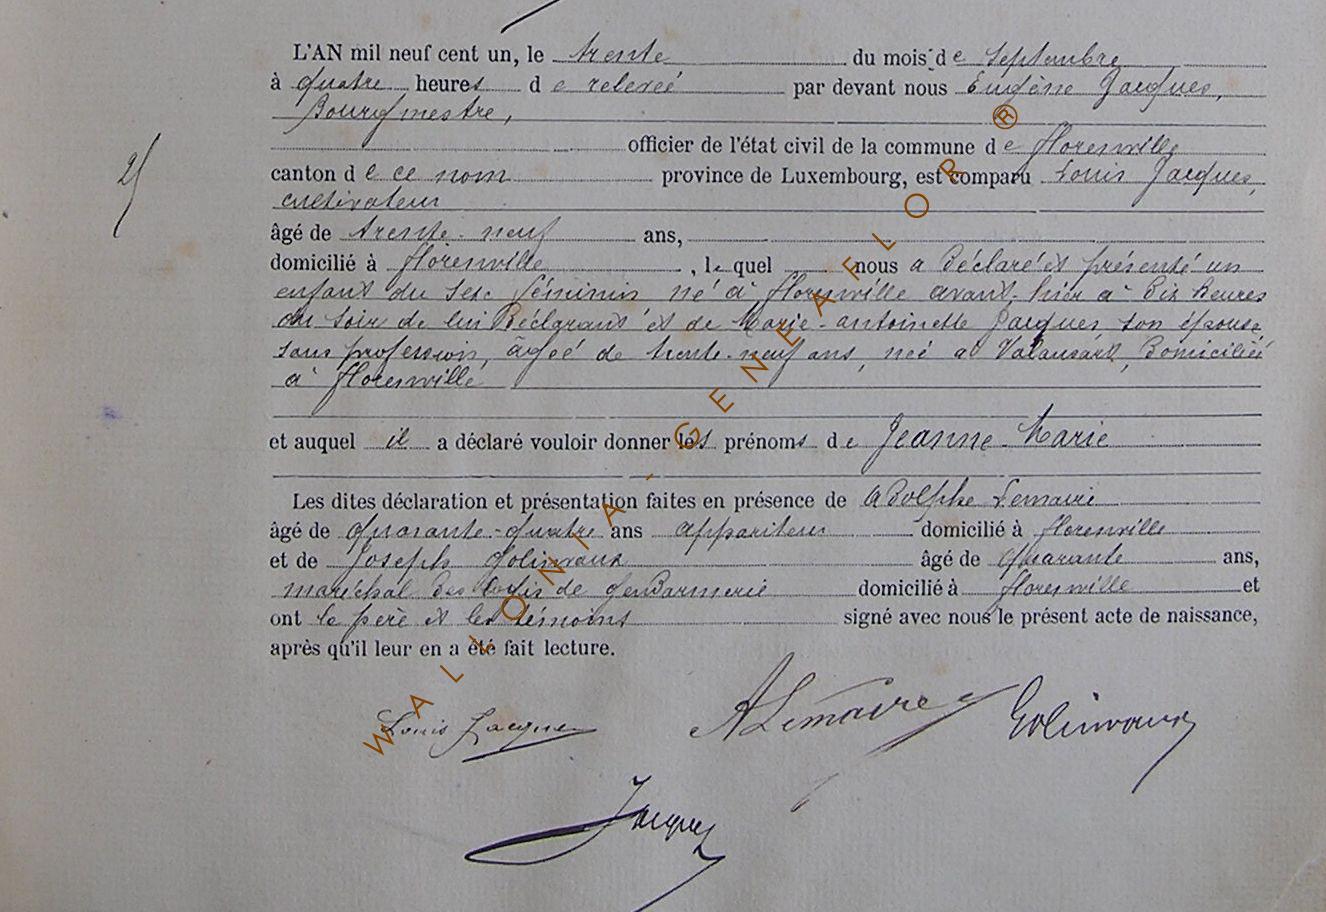 L'AN mil neuf cent un, le trente du mois de septembre
à quatre heures de relevée par devant nous Eugène Jacques,
Bourgmestre,
officier de l'état civil de la commune de Florenville
canton de ce nom province de Luxembourg, est comparu Louis Jacques,
cultivateur
âgé de trente-neuf ans,
domicilié à Florenville, lequel nous a déclaré et présenté un
enfant du sexe féminin né à Florenville avant-hier à dix heures
du soir de lui Déclarant et de Marie-Antoinette Jacques, son épouse
sans profession, âgée de trente-neuf ans, née à Valansart, Domiciliée
à Florenville
et auquel il a déclaré vouloir donner les prénoms de Jeanne Marie
Les dites déclaration et présentation faites en présence de Adolphe Lemaire
âgé de quarante-quatre ans appariteur domicilié à Florenville
et de Joseph Golinvaux âgé de quarante ans,
maréchal des logis de gendarmerie domicilié à Florenville et
ont le père et les témoins signé avec nous le présent acte de naissance,
après qu'il leur en a été fait lecture.
Louis Jacques ALemaire Golinvaux
Jacques
WALLONIA-GENEAFLOR®